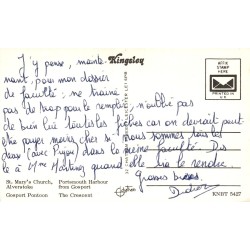 J'y pense, mainte-
Kingsley
nant, pour mon dossier
de faculté : ne traîne
pas de trop pour le remplir, n'oublie pas
de bien lire toutes les fiches car on devrait part.
être payer moins cher si nous sommes tous les
deux (avec Pigeon) dans la même faculté. Dis
le à Mme Martinez quand elle ira le rendre.
Grosses bises.
Didier
AFFIX
STAMP
HERE
PRINTED IN
U.K.
St. Mary's Church,
Alverstoke
Portsmouth Harbour
from Gosport
Gosport Pontoon
The Crescent
KNBT 5427